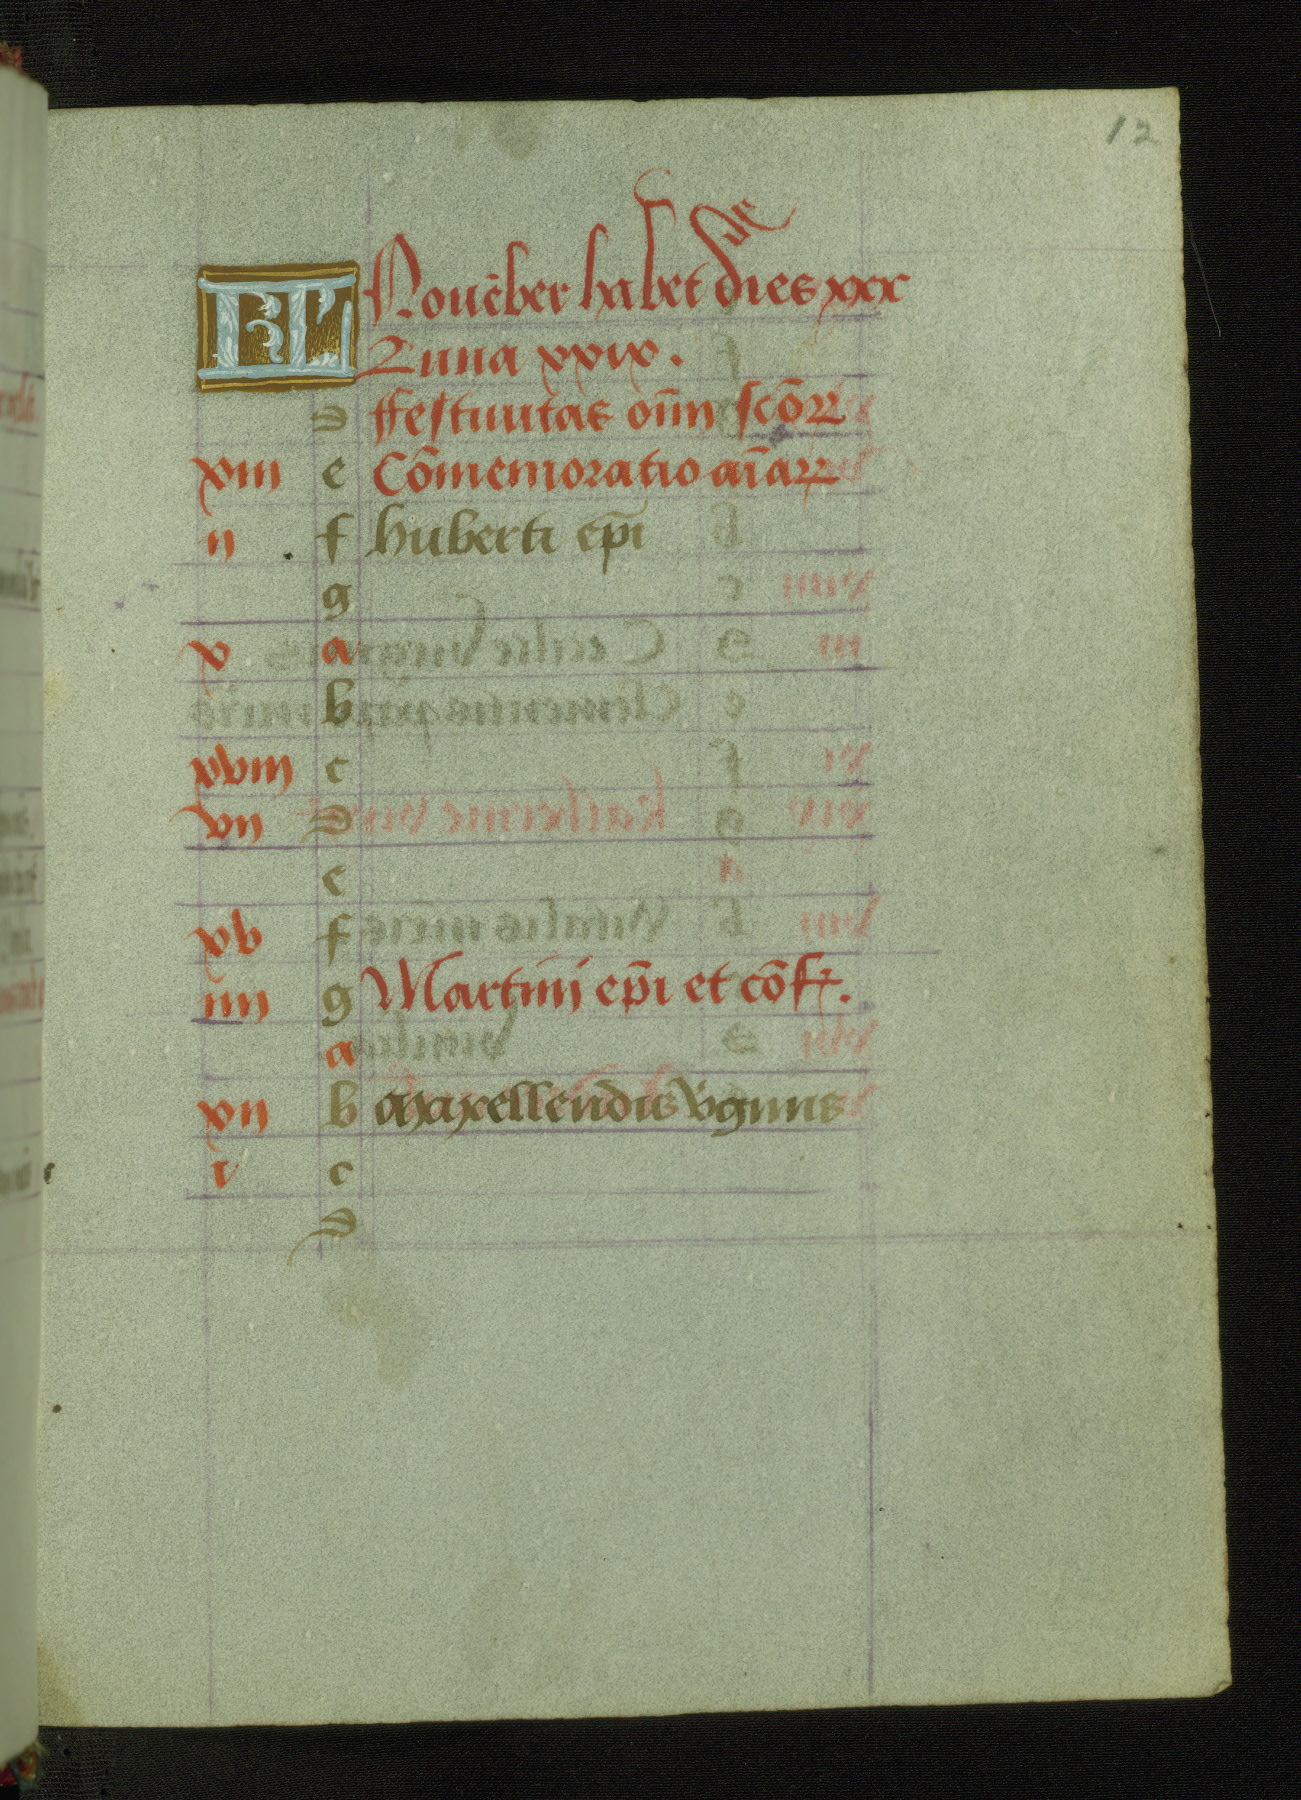 12
KL Nouēber habet dies xxx
Luna xxix.
d ffestiuitas oīm scōꝝ
xiii e Cōmemoratio aīaꝝ
ii f huberti ep̄i
g
x a
b
xviii c
vii d
e
xv f
iiii g Martini ep̄i et cōf.
a
xii b Maxellendis v̄ginis
i c
d